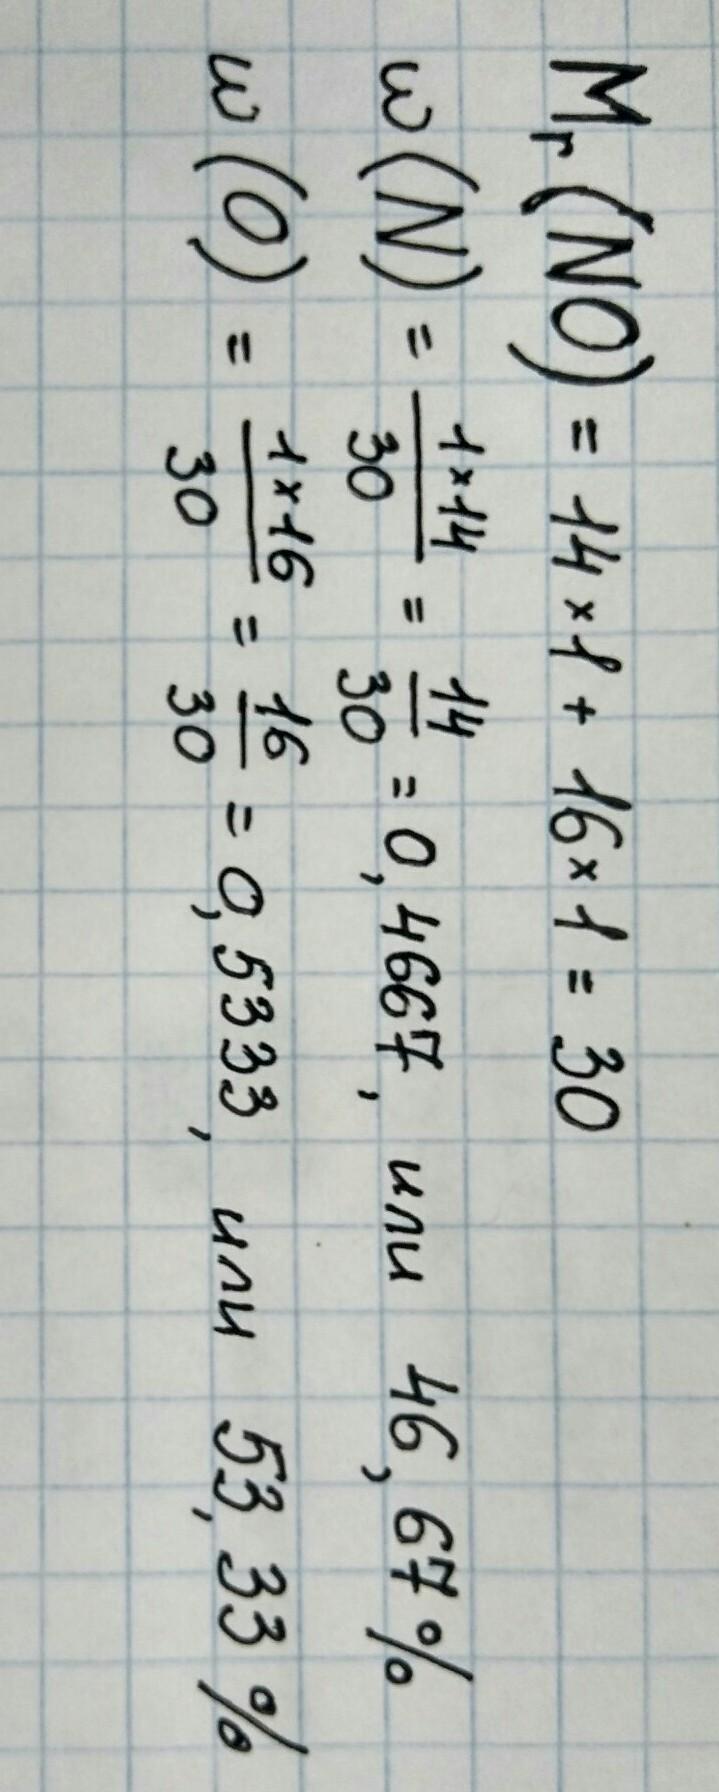 Mr(NO) = 14×1 + 16×1 = 30
w(N) = 1×14/30 = 14/30 = 0,4667, или 46,67%
w(O) = 1×16/30 = 16/30 = 0,5333, или 53,33%